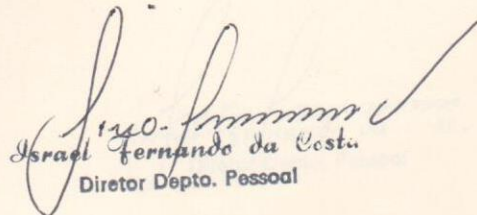 Israel Fernando da Costa
Diretor Depto. Pessoal